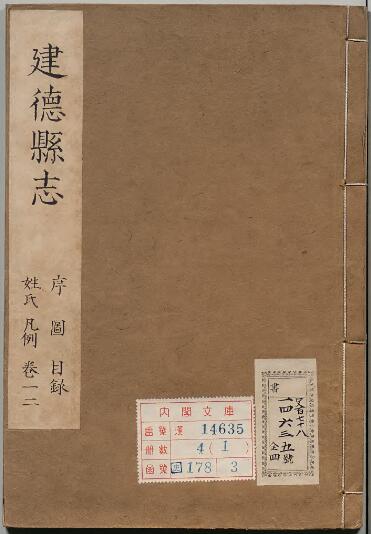 建德縣志
序圖目録
姓氏凡例卷一二
内閣文庫
番號 漢 14635
册數 4(1)
函號 178 3
書
一四六三五號
全四